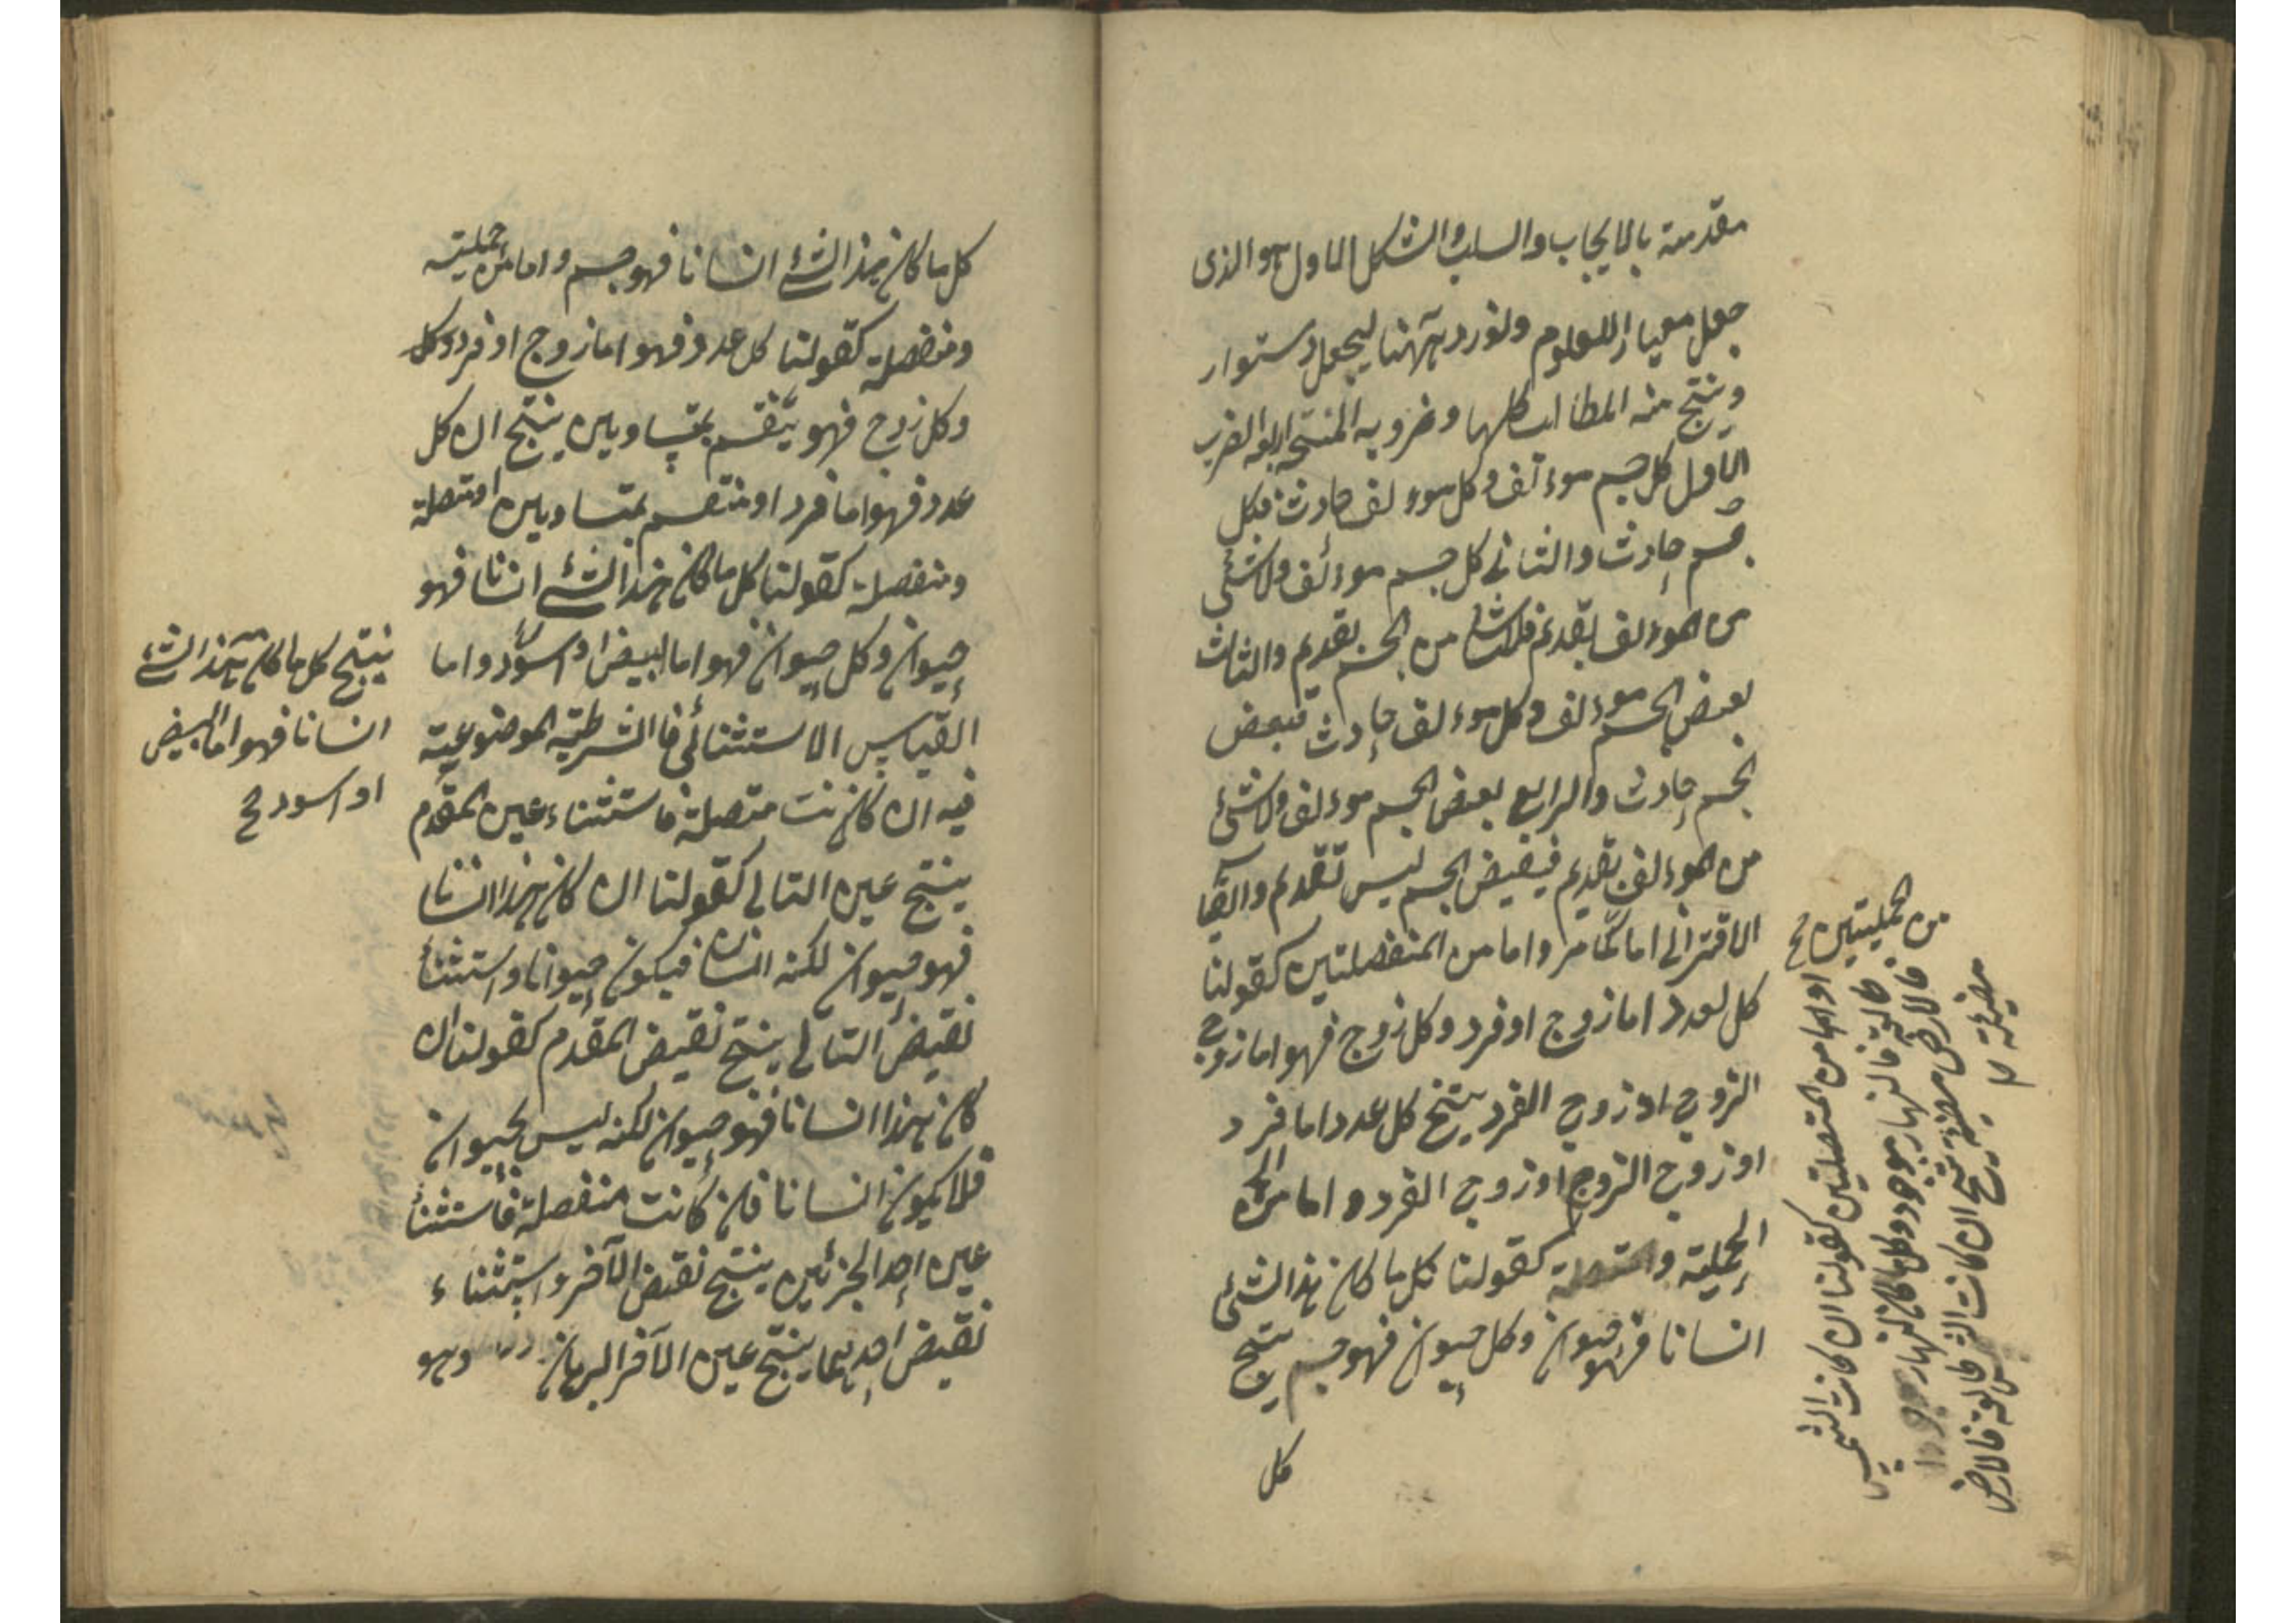 مقدمة بالايجاب والسلب والشكل الاول هو الذى
جعل معيارا للعلوم ولنورد ههنا ليجعل دستوار
وينتج منه المطالب كلها وضروبه المنتجة اربعة الضرب
الاول كل جسم موءلف وكل موءلف حادث فكل
جسم حادث والثانى كل جسم موءلف ولا شئ
من الموءلف بقديم فلا شئ من الجسم بقديم والثالث
بعض الجسم موءلف وكل موءلف حادث فبعض
الجسم حادث والرابع بعض الجسم موءلف ولا شئ
من الموءلف بقديم فبعض الجسم ليس بقديم والقيا
الاقترانى اما كما مر واما من المنفصلتين كقولنا
كل لعدد اما زوج او فرد وكل زوج فهو اما زوج
الزوج او زوج الفرد ينتج كل عدد اما فرد
او زوج الزوج او زوج الفرد واما من
الحملية والمتصلة كقولنا كل ما كان هذا الشئ
انسانا فهو حيوان وكل حيوان فهو جسم ينتج
كل
من الحمليتين صح
او اما من المتصلتين كقولنا ان كانت الشمس
طالعة فالنهار موجود وكل ما كان النهار
فالارض مضيئة ينتج ان كانت الشمس طالعة فالارض
مضيئة
كل ما كان هذا الشئ انسانا فهو جسم واما من حملية
ومنفصلة كقولنا كل عدد فهو اما زوج او فرد وكل
وكل زوج فهو ينقسم بمتساويين ينتج ان كل
عدد فهو اما فرد او منقسم بمتساويين او متصلة
ومنفصلة كقولنا كل ما كان هذا الشئ انسانا فهو
حيوان وكل حيوان فهو اما ابيض او اسود واما
القياس الاستثنائى فا الشرطية الموضوعية
فيه ان كانت متصلة فاستثناء عين المقدم
ينتج عين التالى كقولنا ان كان هذا انسانا
فهو حيوان لكنه انسان فيكون حيوانا واستثناء
نقيض التالى ينتج نقيض المقدم كقولنا ان
كان هذا انسانا فهو حيوان لكنه ليس بحيوان
فلا يكون انسانا فان كانت منفصلة فاستثناء
عين احد الجزئين ينتج نقيض الآخر واستثناء
نقيض احديهما ينتج عين الآخر البرهان وهو
ينتج كل ما كان هذا الشئ
انسانا فهو اما ابيض
او اسود صح